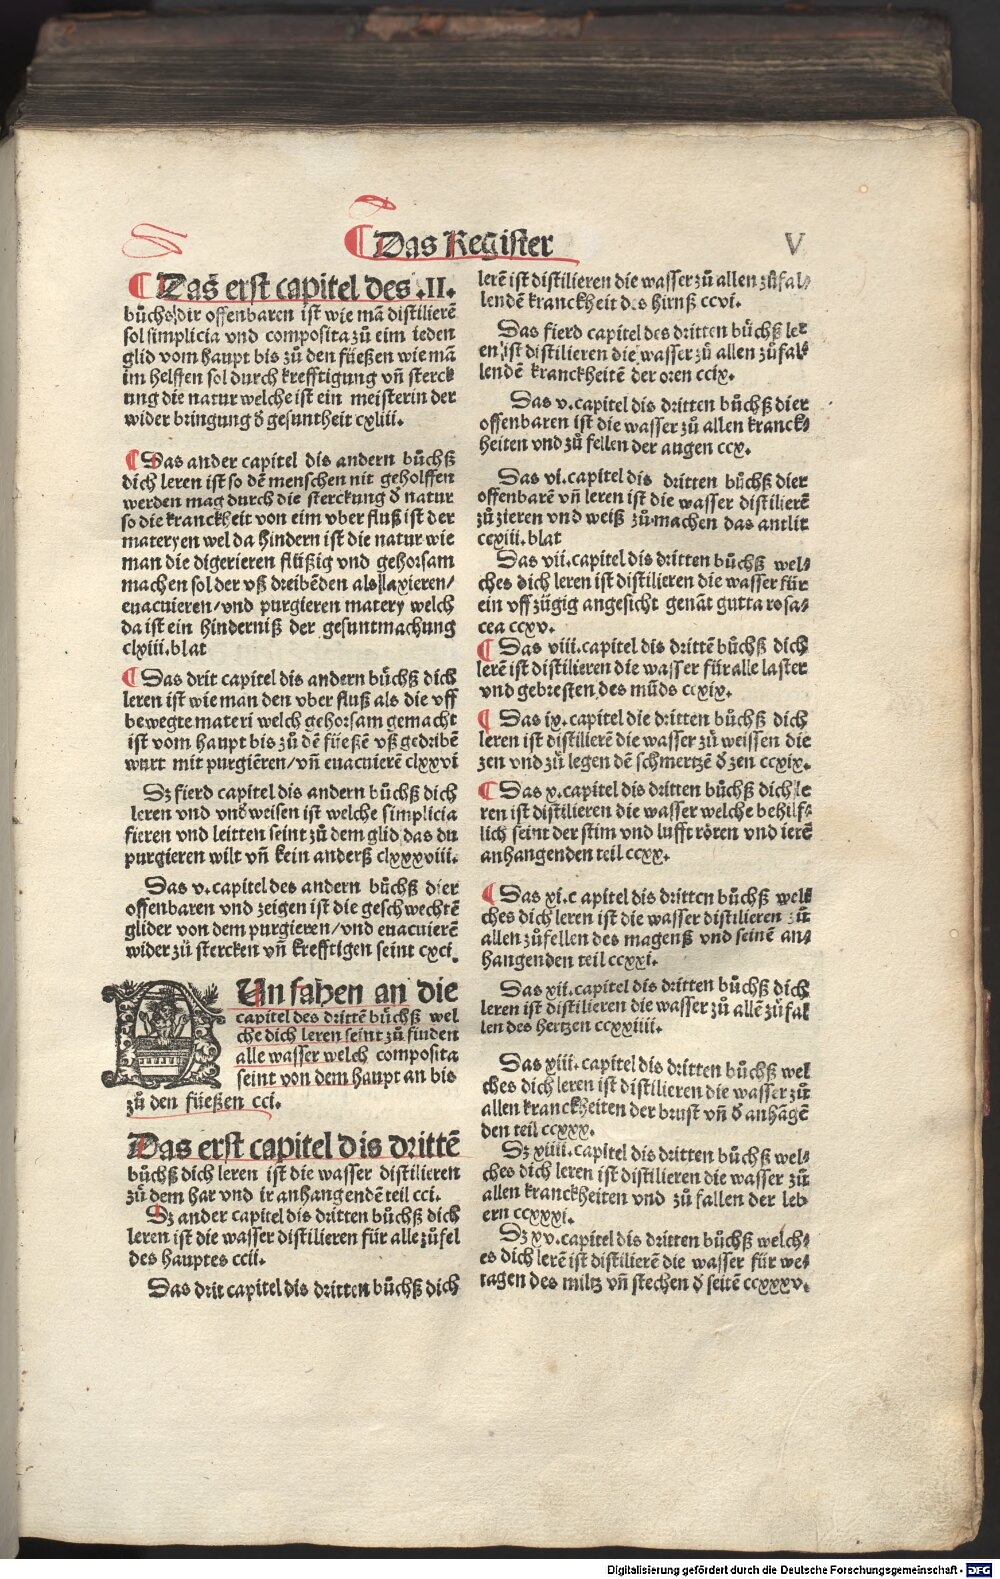 Das Register
V
Das erst capitel des .II.
bůchs dir offenbaren ist wie mā distilierē
sol simplicia vnd composita zů eim ieden
glid vom haupt bis zů den füeßen wie mā
im helffen sol durch krefftigung vñ sterck
ung die natur welche ist ein meisterin der
wider bringung d̄ gesuntheit cxliii.
Das ander capitel dis andern bůchß
dich leren ist so dē menschen nit geholffen
werden mag durch die sterckung d̄ natur
so die kranckheit von eim vber fluß ist der
materyen wel da hindern ist die natur wie
man die digerieren flüßig vnd gehorsam
machen sol der vß dreibēden als laxieren/
euacuieren/vnd purgieren matery welch
da ist ein hinderniß der gesuntmachung
clxiii.blat
Das drit capitel dis andern bůchß dich
leren ist wie man den vber fluß als die vff
bewegte materi welch gehorsam gemacht
ist vom haupt bis zů dē füeßē vß gedribē
wurt mit purgiēren/vñ euacuierē clxxvi
Dz fierd capitel dis andern bůchß dich
leren vnd vnd̄weisen ist welche simplicia
fieren vnd leitten seint zů dem glid das du
purgieren wilt vñ kein anderß clxxxviii.
Das v.capitel des andern bůchß dier
offenbaren vnd zeigen ist die geschwechtē
glider von dem purgieren/vnd euacuierē
wider zů stercken vñ krefftigen seint cxci.
Un fahen an die
capitel des drittē bůchß wel
che dich leren seint zů finden
alle wasser welch composita
seint von dem haupt an bis
zů den füeßen cci.
Das erst capitel dis drittē
bůchß dich leren ist die wasser distilieren
zů dem har vnd ir anhangendē teil cci.
Dz ander capitel dis dritten bůchß dich
leren ist die wasser distilieren für alle zůfel
des hauptes ccii.
Das drit capitel dis dritten bůchß dich
lerē ist distilieren die wasser zů allen zůfal⸗
lendē kranckheit des hirnß ccvi.
Das fierd capitel des dritten bůchß ler
en ist distilieren die wasser zů allen zůfal⸗
lendē kranckheitē der oren ccix.
Das v.capitel dis dritten bůchß dier
offenbaren ist die wasser zů allen kranck⸗
heiten vnd zů fellen der augen ccx.
Das vi.capitel dis dritten bůchß dier
offenbarē vñ leren ist die wasser distilierē
zů zieren vnd weiß zů machen das antlit
ccxiii.blat
Das vii.capitel dis dritten bůchß wel⸗
ches dich leren ist distilieren die wasser für
ein vff zügig angesicht genāt gutta rosa⸗
cea ccxv.
Das viii.capitel dis drittē bůchß dich
lerē ist distilieren die wasser für alle laster
vnd gebresten des můds ccxix.
Das ix.capitel die dritten bůchß dich
leren ist distilierē die wasser zů weissen die
zen vnd zů legen dē schmertzē d̄ zen ccxix.
Das x.capitel dis dritten bůchß dich le
ren ist distilieren die wasser welche behilf⸗
lich seint der stim vnd lufft rören vnd ierē
anhangenden teil ccxx.
Das xi.capitel dis dritten bůchß wel⸗
ches dich leren ist die wasser distilieren zů
allen zůfellen des magenß vnd seinē an⸗
hangenden teil ccxxi.
Das xii.capitel dis dritten bůchß dich
leren ist distilieren die wasser zů allē zůfal
len des hertzen ccxxiiii.
Das xiii.capitel dis dritten bůchß wel
ches dich leren ist distilieren die wasser zů
allen kranckheiten der brust vñ d̄ anhāgē
den teil ccxxx.
Dz xiiii.capitel dis dritten bůchß wel⸗
ches dich leren ist distilieren die wasser zů
allen kranckheiten vnd zů fallen der leb
ern ccxxxi.
Dz xv.capitel dis dritten bůchß welch⸗
es dich lerē ist distilierē die wasser für we⸗
tagen des miltz vñ stechen d̄ seitē ccxxxv.
Digitalisierung gefördert durch die Deutsche Forschungsgemeinschaft - DFG